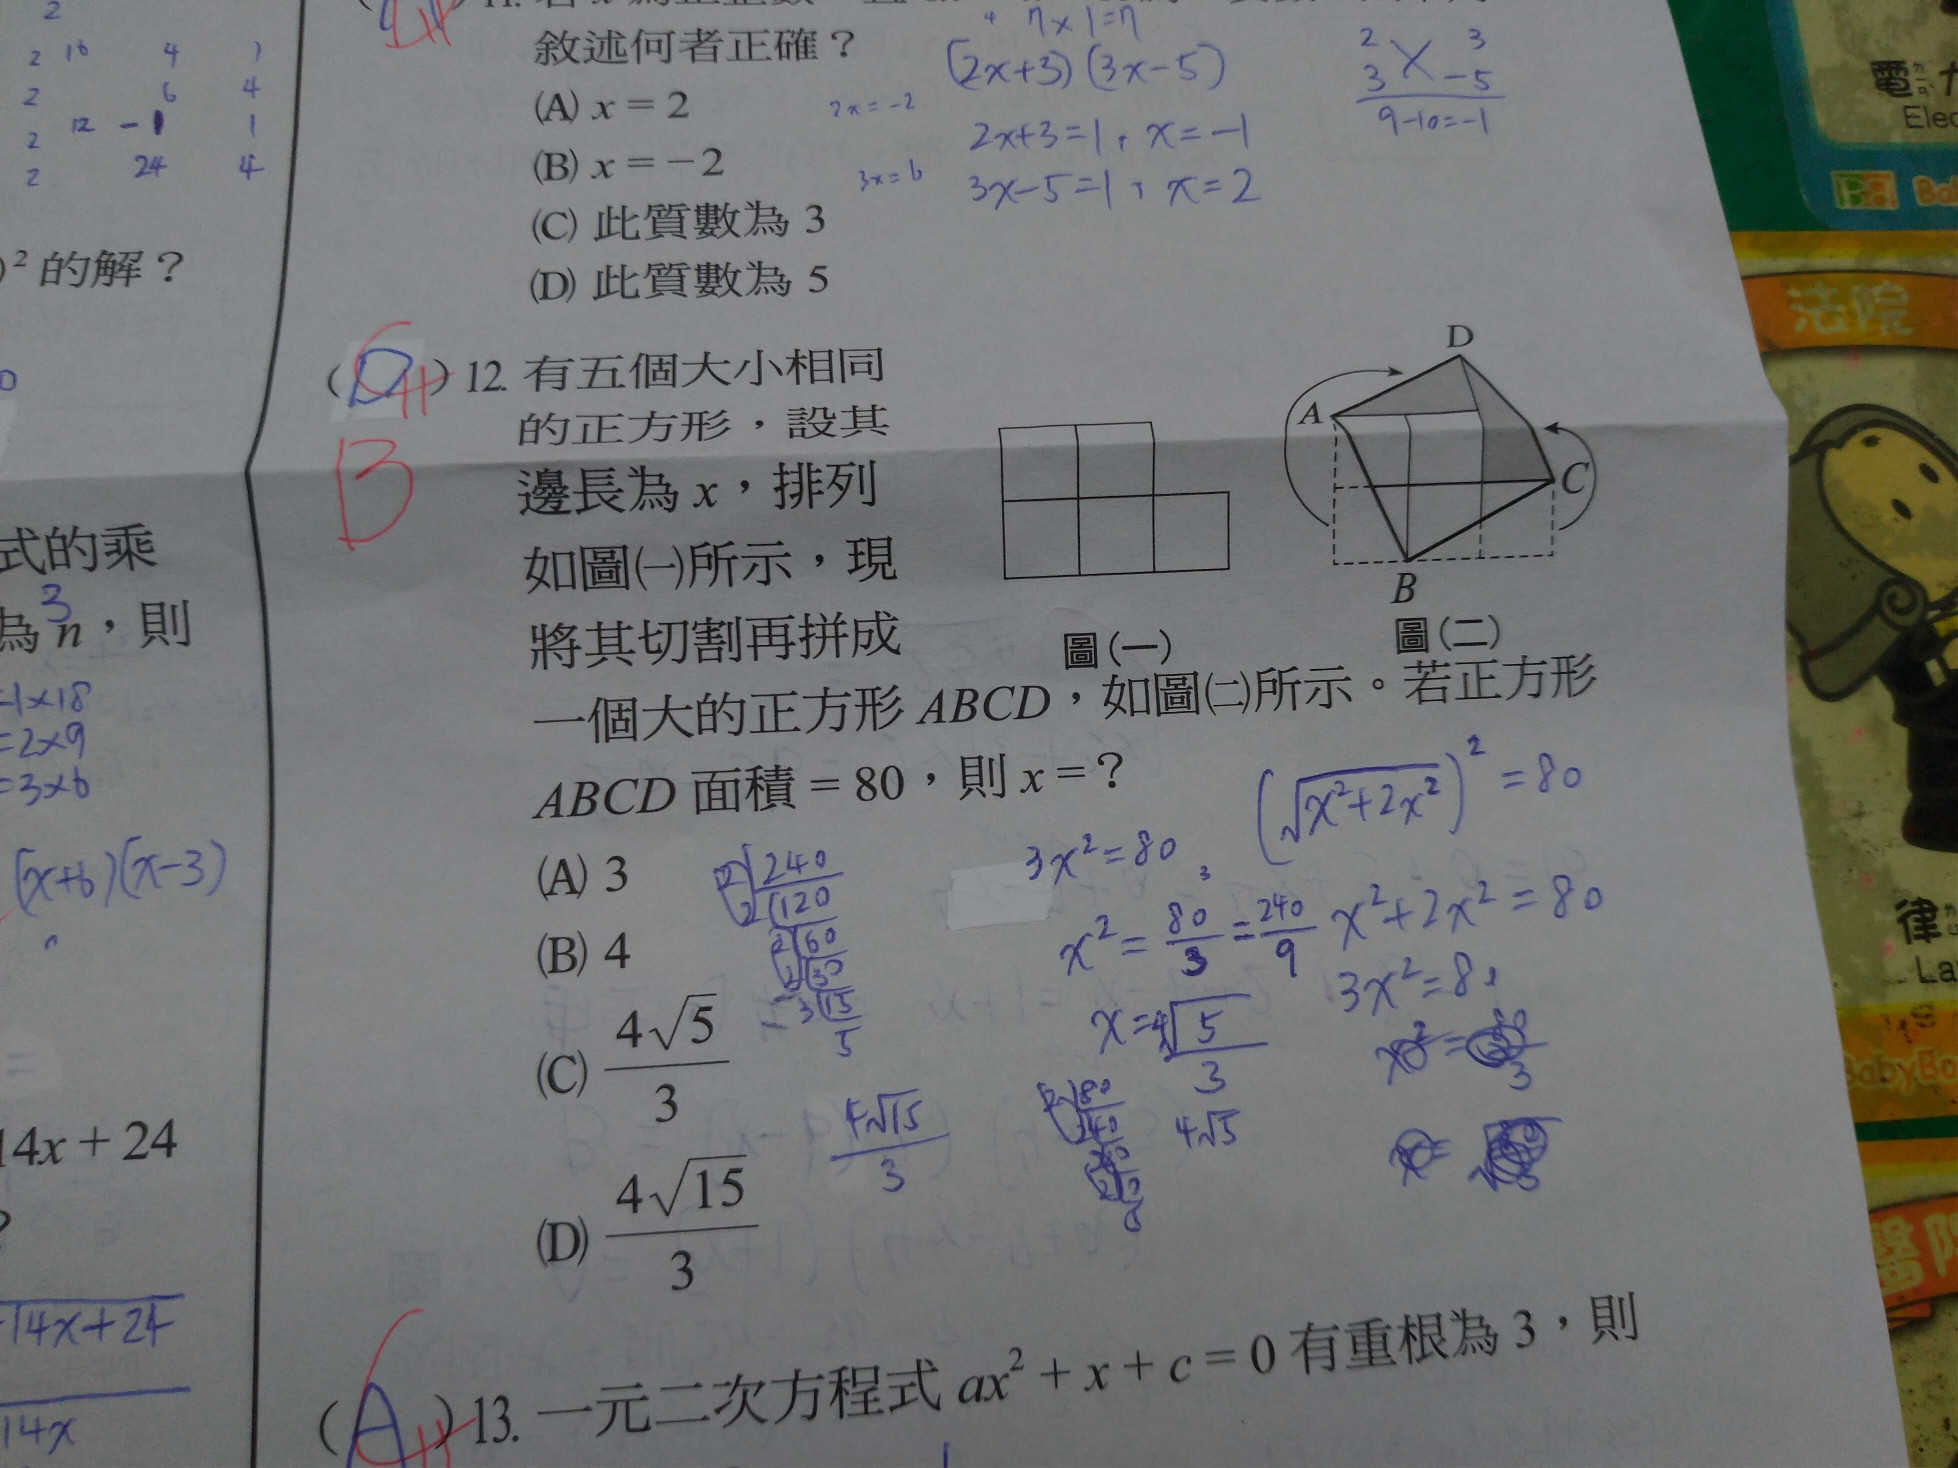 2
2 18 4 1
2 6 4
2 12 -1 1
2 24 4
)² 的解？
0
式的乘
為 n，則
3
=1×18
=2×9
=3×6
(x+6)(x-3)
14x + 24
?
14x+24
14x
敘述何者正確？
(A) x = 2
(B) x = -2
(C) 此質數為 3
(D) 此質數為 5
7×1=7
(2x+3)(3x-5)
2x=-2
2x+3=1, x=-1
3x=6
3x-5=1, x=2
2 3
3 -5
9-10=-1
(D) 12. 有五個大小相同
的正方形，設其
邊長為 x，排列
如圖㈠所示，現
將其切割再拼成
一個大的正方形 ABCD，如圖㈡所示。若正方形
ABCD 面積 = 80，則 x = ?
B
D
A
C
B
圖(一)
圖(二)
(A) 3
(B) 4
(C) 4√5/3
(D) 4√15/3
2 240
2 120
2 60
2 30
3 15
5
4√15/3
3x²=80
x²=80/3=240/9
x=4√5/3
4√5
(√x²+2x²)²=80
x²+2x²=80
(A) 13. 一元二次方程式 ax² + x + c = 0 有重根為 3，則
電力
Elec
法院
律
La
BabyBo
醫院